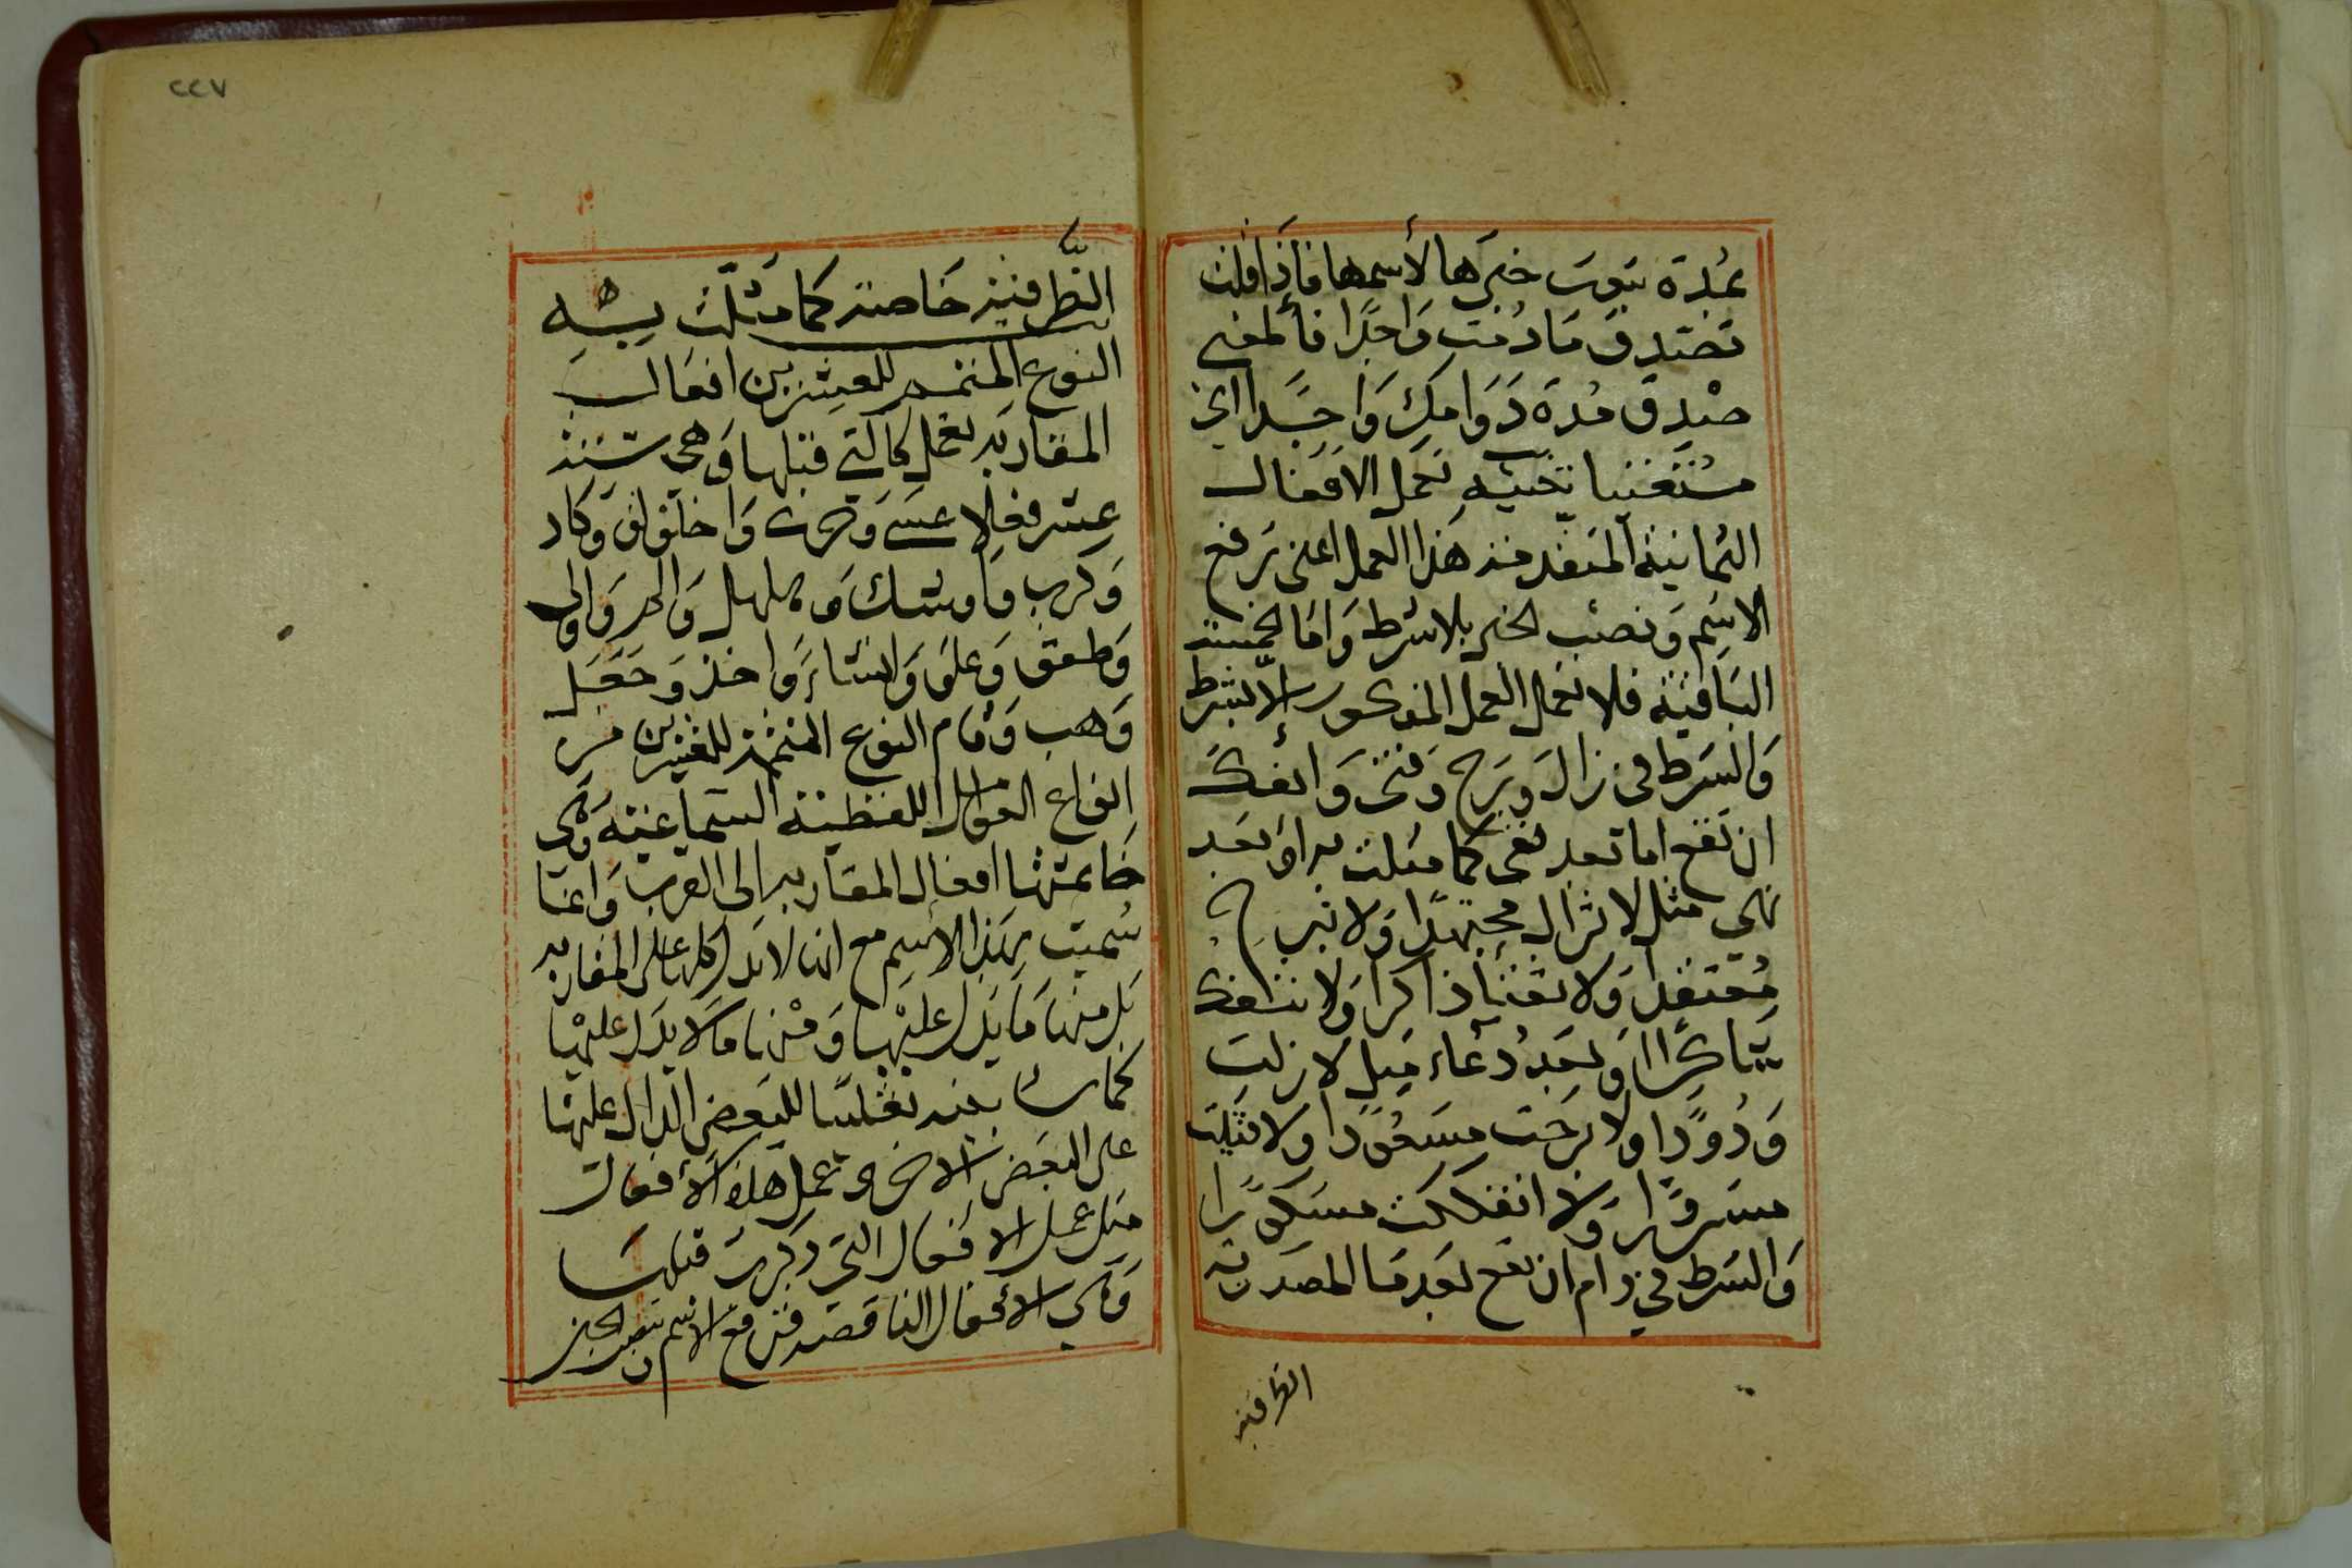 بمدة ثبوت خبرها لأسمها فأذا قلت
تصدق مادمت واجدا فألمعنى
صدق مدة دوامك واجدا اى
مستغنيا تنبيه تعمل الافعال
الثمانية المتقدمة هذا العمل اعنى ترفع
الاسم وتنصب الخبر بلا شرط واما الخمسة
الباقية فلا تعمل العمل المذكور إلا بشرط
والشرط فى زال وبرح وفتئ وانفك
ان تقع اما بعد نفى كما مثلت به او بعد
نهي مثل لا تزال مجتهدا ولا تبرح
معتقدا ولا تفتأ ذاكرا ولا تنفك
شاكرا او بعد دعاء مثل لا زلت
ودودا ولا برحت مسعودا ولا فتئت
مسرورا ولا انفككت مشكورا
والشرط في دام ان تقع بعد ما المصدرية
الظرفية
٢٢٧
الظرفية خاصة كما مثلت به
النوع المتمم للعشرين افعال
المقاربة تعمل كالتي قبلها وهى ستة
عشر فعلا عسى وحرى واخلولق وكاد
وكرب واوشك وهلهل والم واولى
وطفق وعلق وانشأ واخذ وجعل
وهب وقام النوع المتمم للعشرين من
انواع العوامل اللفظية السماعية وهى
خاتمتها افعال المقاربة الى القرب وانما
سميت بهذا الاسم مع انها لا تدل كلها على المقاربة
بل منها ما يدل عليها ومنها ما لا يدل عليها
كما سأبينه تغليبا للبعض الدال عليها
على البعض الاخر وعمل هذه الأفعال
مثل عمل الافعال التى ذكرت قبلها
وهى الأفعال الناقصة فترفع الاسم وتنصب الخبر